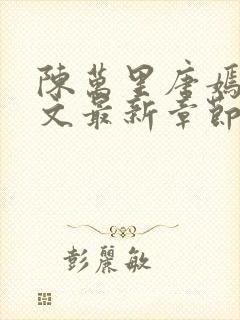 陳萬里唐嫣
文最新章節
彭麗敏